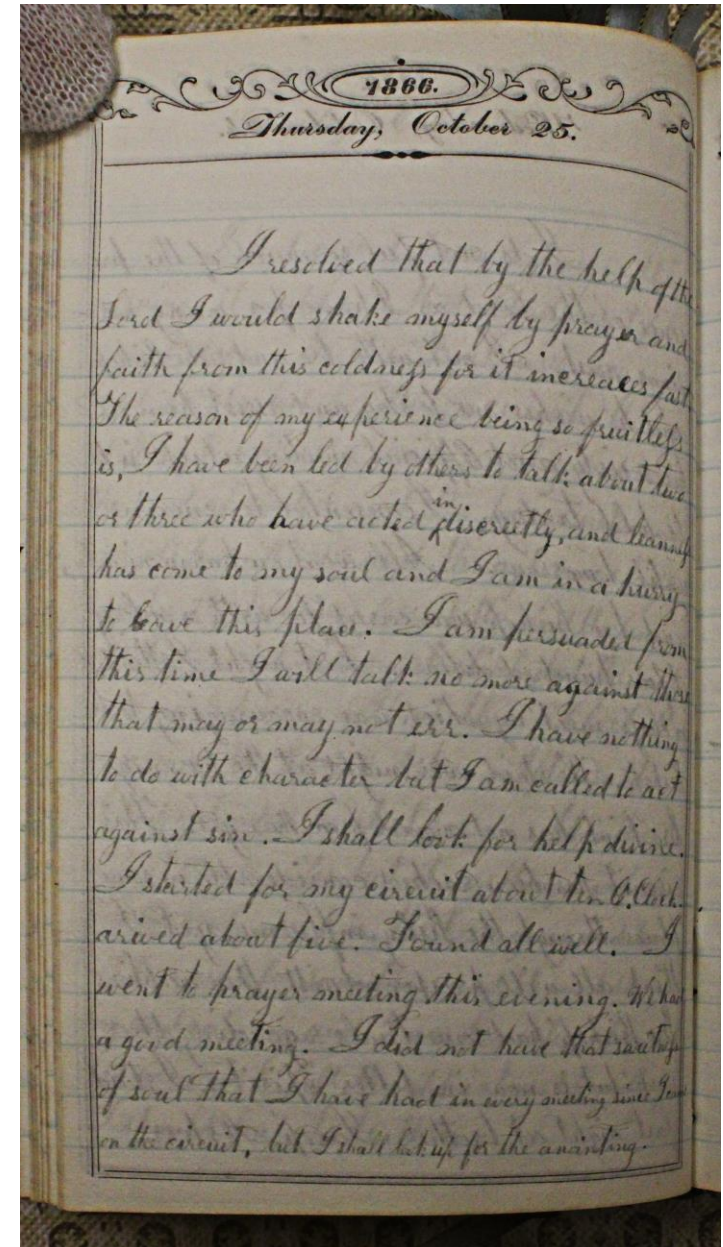 1866.
Thursday, October 25.
I resolved that by the help of the
Lord I would shake myself by prayer and
faith from this coldness for it increaces fast
The reason of my experience being so fruitless
is, I have been led by others to talk about two
or three who have acted indiscreetly, and leanness
has come to my soul and I am in a hurry
to leave this place. I am persuaded from
this time I will talk no more against those
that may or may not err. I have nothing
to do with character but I am called to act
against sin. I shall look for help divine.
I started for my circuit about ten O.Clock.
arived about five. Found all well. I
went to prayer meeting this evening. We had
a good meeting. I did not have that
of soul that I have had in every meeting since I
on the circuit, but I shall look up for the anointing.